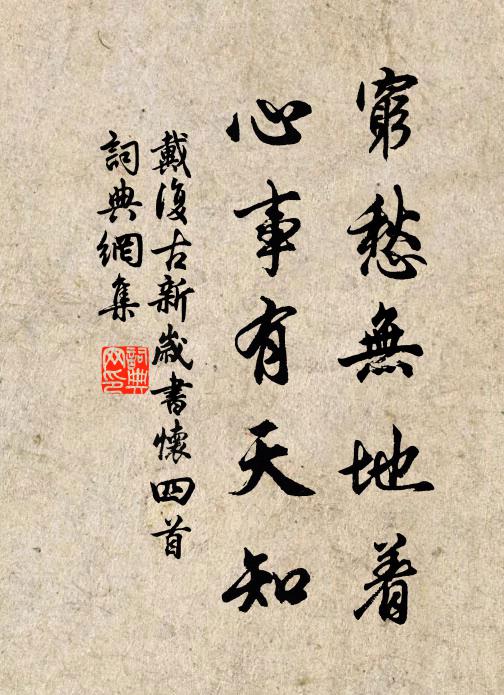 窮愁無地着
心事有天知
戴復古新歲書懷四首
詞典網集
詞典
网印